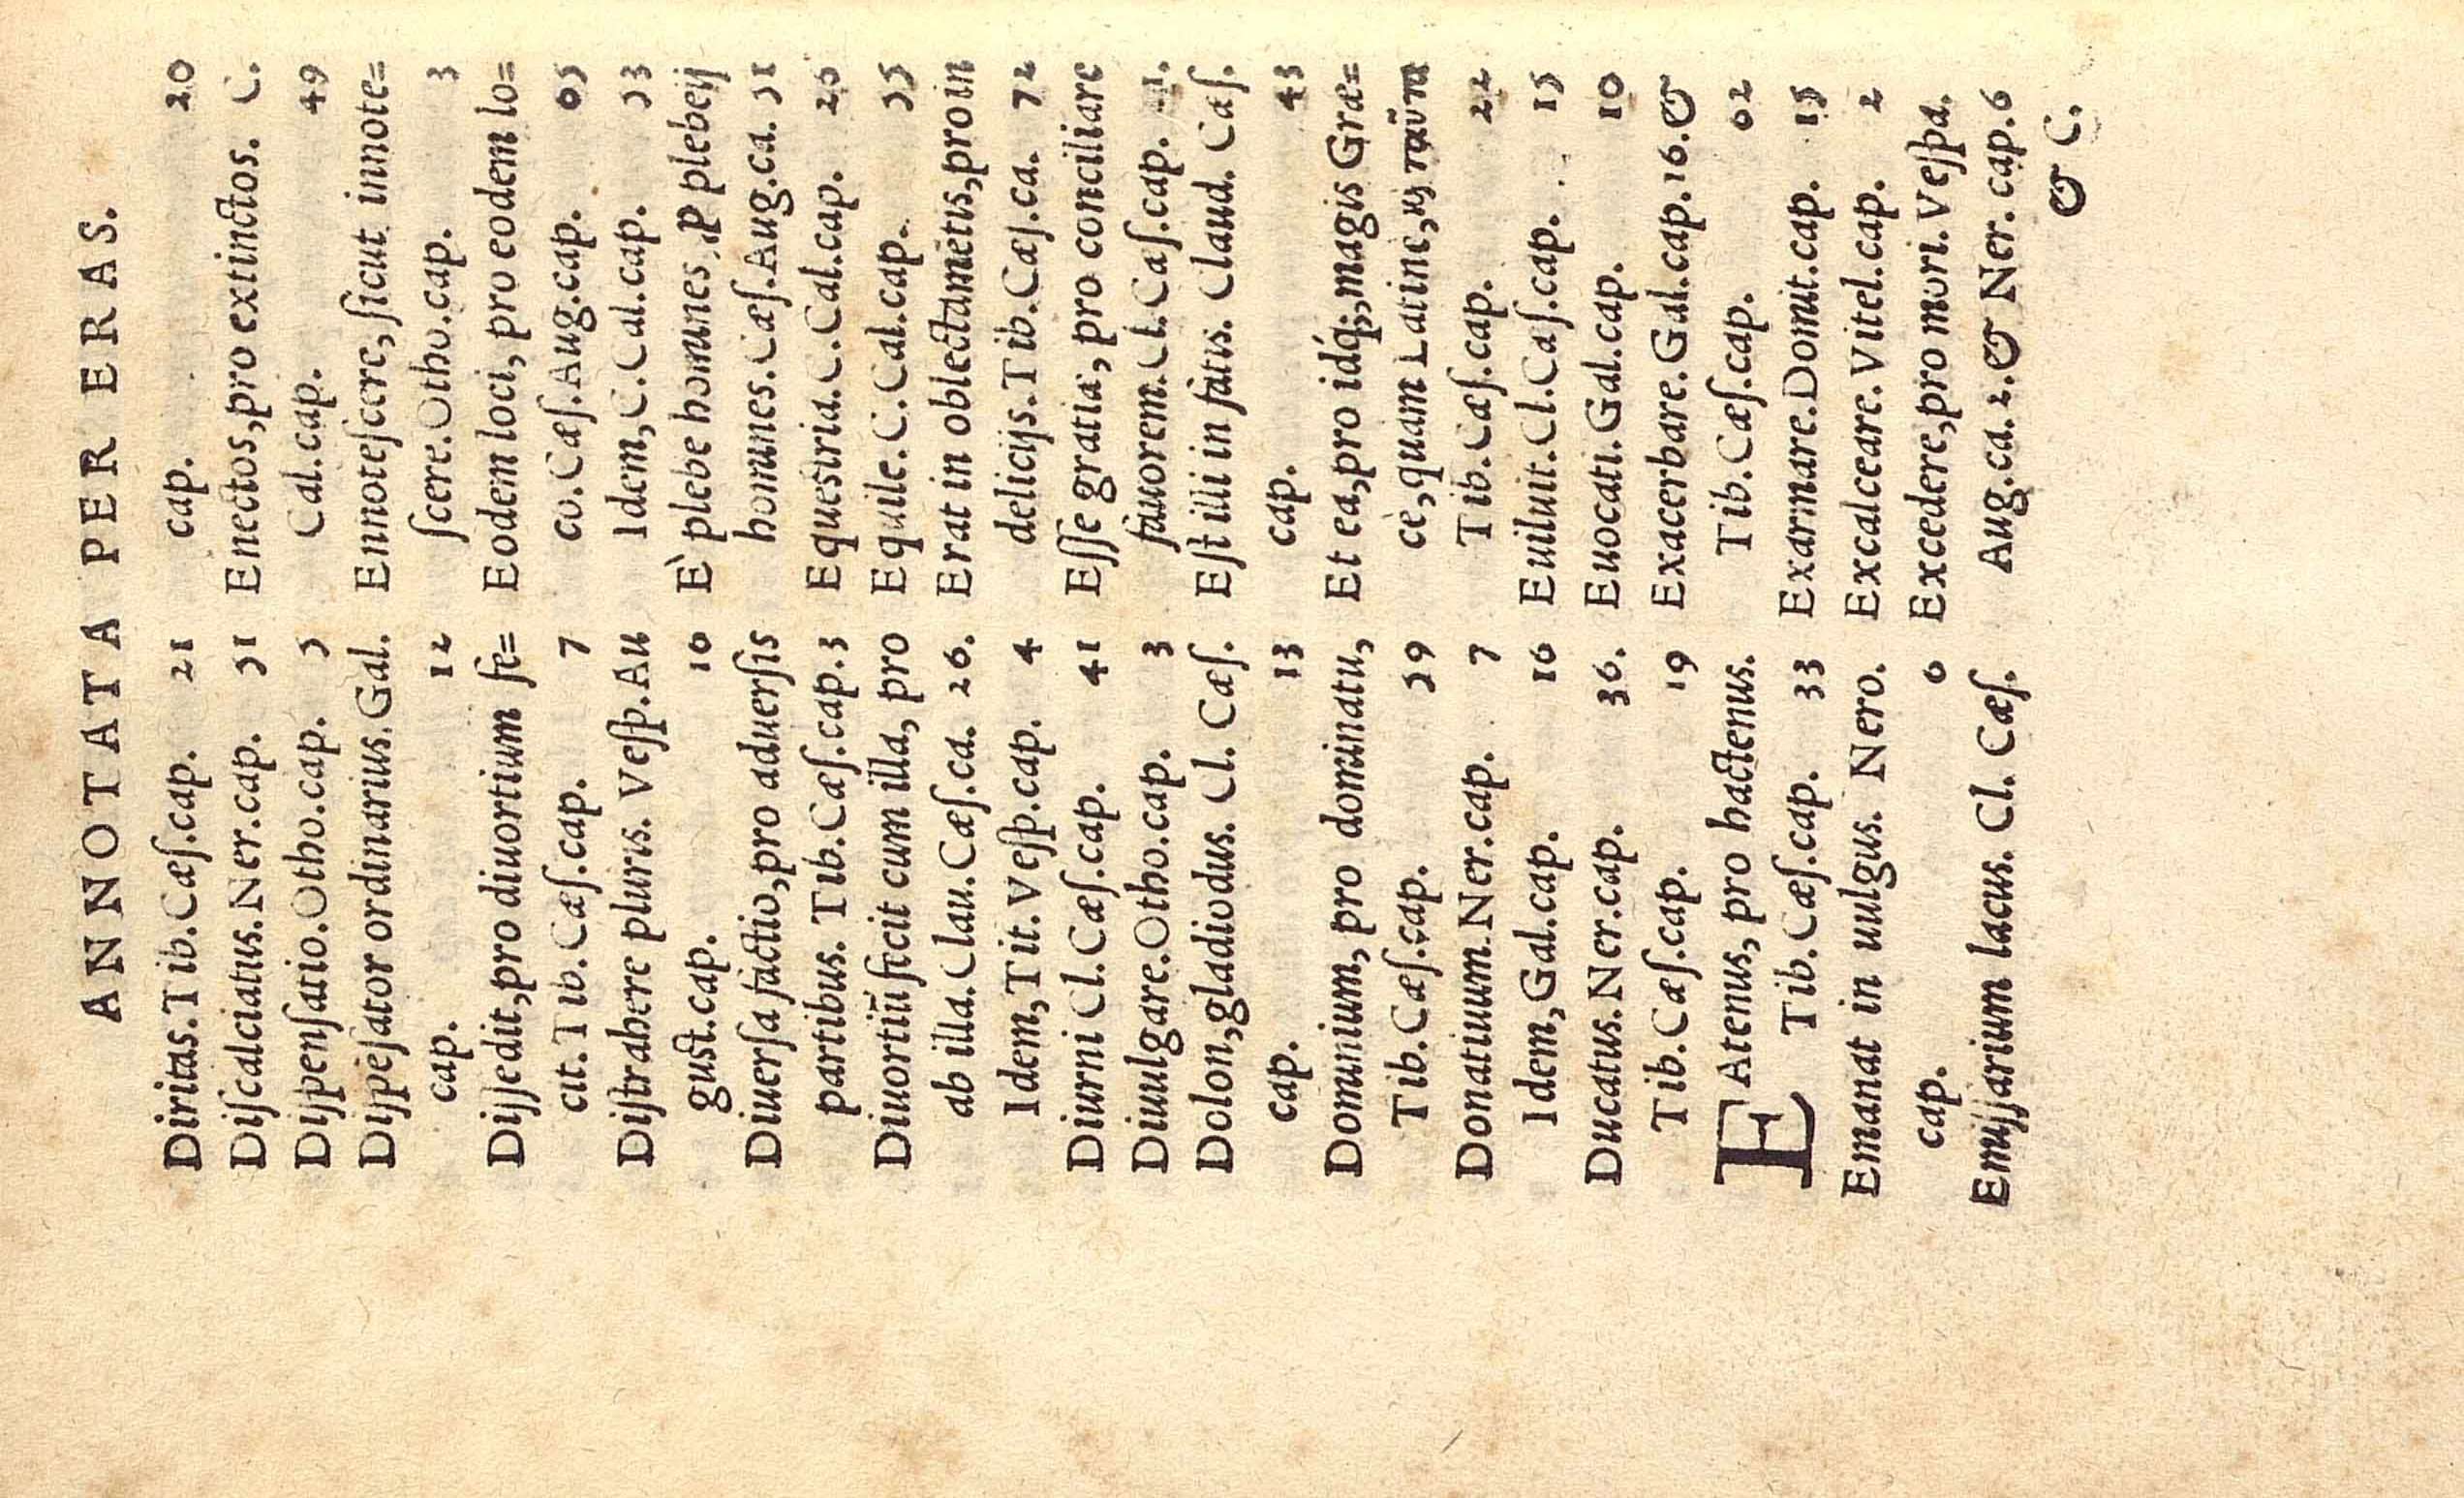 ANNOTATA PER ERAS.
Diritas. Tib. Cæſ. cap. 21
Diſcalciatus. Ner. cap. 51
Diſpenſatio. Otho. cap. 5
Diſpēſator ordinarius. Gal.
cap. 12
Diſſedit, pro diuortium fe=
cit. Tib. Cæſ. cap. 7
Diſtrahere pluris. Veſp. Au
guſt. cap. 16
Diuerſa factio, pro aduerſis
partibus. Tib. Cæſ. cap. 3
Diuortiū fecit cum illa, pro
ab illa. Clau. Cæſ. ca. 26.
Idem, Tit. Veſp. cap. 4
Diurni Cl. Cæſ. cap. 41
Diuulgare. Otho. cap. 3
Dolon, gladiodus. Cl. Cæſ.
cap. 13
Dominium, pro dominatu,
Tib. Cæſ. cap. 59
Donatiuum. Ner. cap. 7
Idem, Gal. cap. 16
Ducatus. Ner. cap. 36.
Tib. Cæſ. cap. 19
EAtenus, pro hactenus.
Tib. Cæſ. cap. 33
Emanat in uulgus. Nero.
cap. 6
Emiſſarium lacus. Cl. Cæſ.
cap. 20
Enectos, pro extinctos. C.
Cal. cap. 49
Ennoteſcere, ſicut innote=
ſcere. Otho. cap. 3
Eodem loci, pro eodem lo=
co. Cæſ. Aug. cap. 65
Idem, C. Cal. cap. 53
E` plebe homines, ꝓ plebeij
homines. Cæſ. Aug. ca. 51
Equeſtria. C. Cal. cap. 26
Equile. C. Cal. cap. 55
Erat in oblectamētis, pro in
delicijs. Tib. Cæſ. ca. 72
Eſſe gratiæ, pro conciliare
fauorem. Cl. Cæſ. cap.
Eſt illi in fatis. Claud. Cæſ.
cap. 43
Et ea, pro idq́;, magis Græ=
cè, quam Latine, ταῦτα
Tib. Cæſ. cap. 22
Euiluit. Cl. Cæſ. cap. 15
Euocati. Gal. cap. 10
Exacerbare. Gal. cap. 16. &
Tib. Cæſ. cap. 62
Exarmare. Domit. cap. 15
Excalceare. Vitel. cap. 2
Excedere, pro mori. Veſpa.
Aug. ca. 2. & Ner. cap. 6
& C.